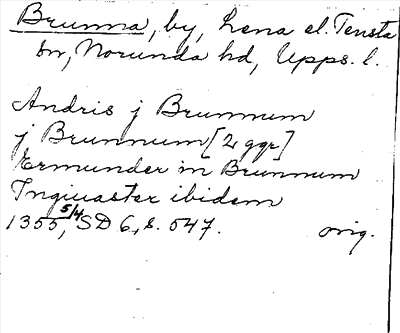 Brunna, by, Lena el. Tensta
sn, Norunda hd, Upps. l.
Andris j Brunnum
j Brunnum [2 ggr]
Ermunder in Brunnum
Ingiuaster ibidem
1355 5/4, SD 6, s. 547. orig.